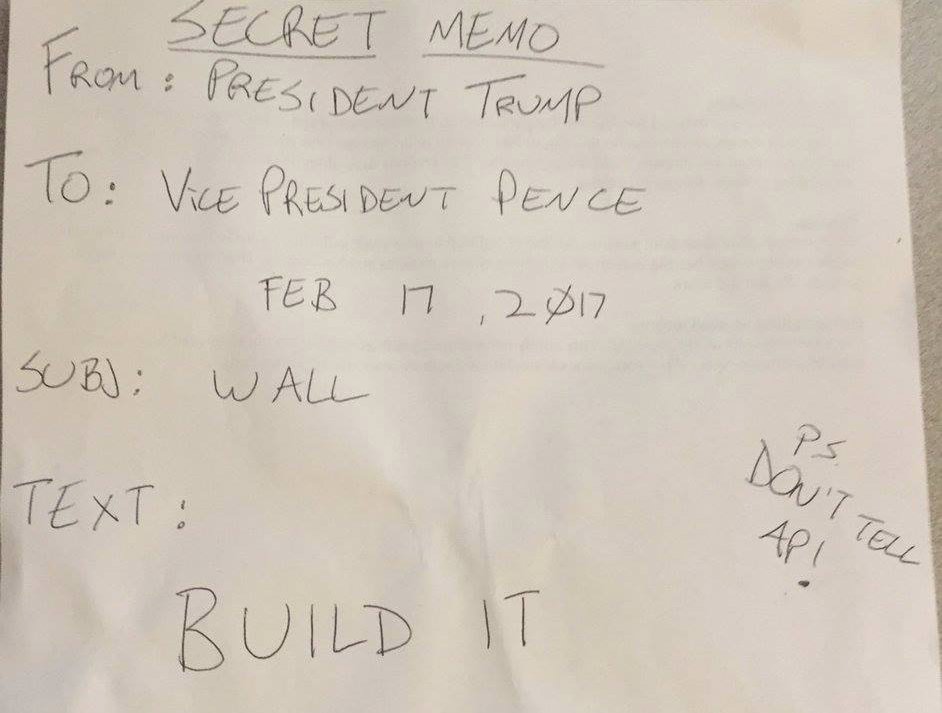 SECRET MEMO
FROM: PRESIDENT TRUMP
TO: VICE PRESIDENT PENCE
FEB 17, 2017
SUBJ: WALL
TEXT:
BUILD IT
PS
DON'T TELL
AP!